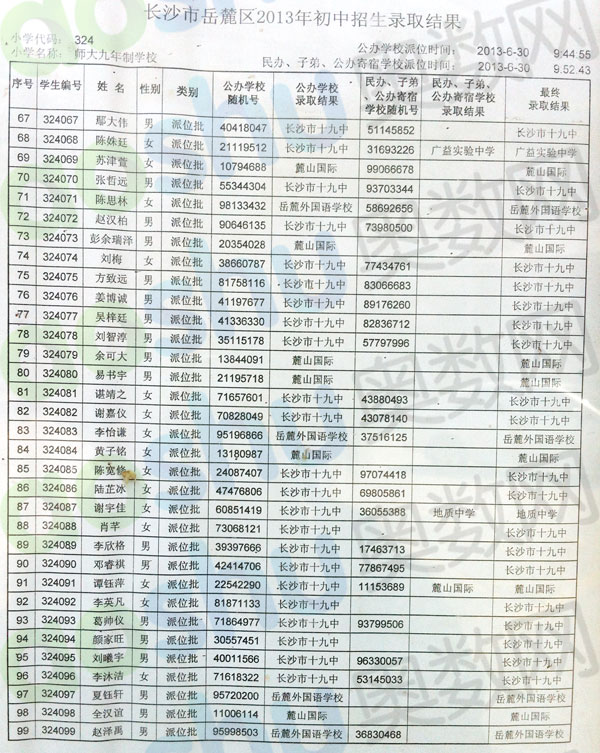 长沙市岳麓区2013年初中招生录取结果
小学代码: 324 公办学校派位时间: 2013-6-30 9:44:55
小学名称: 师大九年制学校 民办、子弟、公办寄宿学校派位时间: 2013-6-30 9.52.43
序号 学生编号 姓 名 性别 类别 公办学校随机号 公办学校录取结果 民办、子弟、公办寄宿学校随机号 民办、子弟、公办寄宿学校录取结果 最终录取结果
67 324067 鄢大伟 男 派位批 40418047 长沙市十九中 51145852 长沙市十九中
68 324068 陈姝廷 女 派位批 21119512 长沙市十九中 31693226 广益实验中学 广益实验中学
69 324069 苏津萱 女 派位批 10794688 麓山国际 99066678 麓山国际
70 324070 张哲远 男 派位批 55344304 长沙市十九中 93703344 长沙市十九中
71 324071 陈思林 女 派位批 98133432 岳麓外国语学校 58692656 岳麓外国语学校
72 324072 赵汉柏 男 派位批 90646135 长沙市十九中 73980500 长沙市十九中
73 324073 彭余瑞泽 男 派位批 20354028 麓山国际 麓山国际
74 324074 刘梅 女 派位批 38660787 长沙市十九中 77434761 长沙市十九中
75 324075 方致远 男 派位批 81758116 长沙市十九中 83066683 长沙市十九中
76 324076 姜博诚 男 派位批 41197677 长沙市十九中 89176260 长沙市十九中
77 324077 吴梓廷 男 派位批 41336330 长沙市十九中 82836712 长沙市十九中
78 324078 刘智淳 男 派位批 35115178 长沙市十九中 57797996 长沙市十九中
79 324079 余可大 男 派位批 13844091 麓山国际 麓山国际
80 324080 易书宇 男 派位批 21195718 麓山国际 麓山国际
81 324081 谌靖之 女 派位批 71657601 长沙市十九中 43880493 长沙市十九中
82 324082 谢嘉仪 女 派位批 70828049 长沙市十九中 43078140 长沙市十九中
83 324083 李怡谦 女 派位批 95196866 岳麓外国语学校 37516125 岳麓外国语学校
84 324084 黄子铭 女 派位批 13180987 麓山国际 麓山国际
85 324085 陈宽修 派位批 24087407 长沙市十九中 97074418 长沙市十九中
86 324086 陆芷冰 女 派位批 47476806 长沙市十九中 69805861 长沙市十九中
87 324087 谢宇佳 女 派位批 60851419 长沙市十九中 36055388 地质中学 地质中学
88 324088 肖芊 女 派位批 73068121 长沙市十九中 长沙市十九中
89 324089 李欣格 男 派位批 39397666 长沙市十九中 17463713 长沙市十九中
90 324090 邓睿祺 男 派位批 42414706 长沙市十九中 77867495 长沙市十九中
91 324091 谭钰萍 女 派位批 22542290 长沙市十九中 11153689 麓山国际 麓山国际
92 324092 李英凡 女 派位批 81871133 长沙市十九中 长沙市十九中
93 324093 葛帅仪 男 派位批 71864977 长沙市十九中 93799506 长沙市十九中
94 324094 颜家旺 男 派位批 30557451 长沙市十九中 长沙市十九中
95 324095 刘曦宇 男 派位批 40011566 长沙市十九中 96330057 长沙市十九中
96 324096 李沐洁 女 派位批 71618322 长沙市十九中 53145033 长沙市十九中
97 324097 夏钰轩 男 派位批 95720200 岳麓外国语学校 岳麓外国语学校
98 324098 全汉谊 男 派位批 11006114 麓山国际 麓山国际
99 324099 赵泽禹 男 派位批 95998503 岳麓外国语学校 36830468 岳麓外国语学校
奥数网